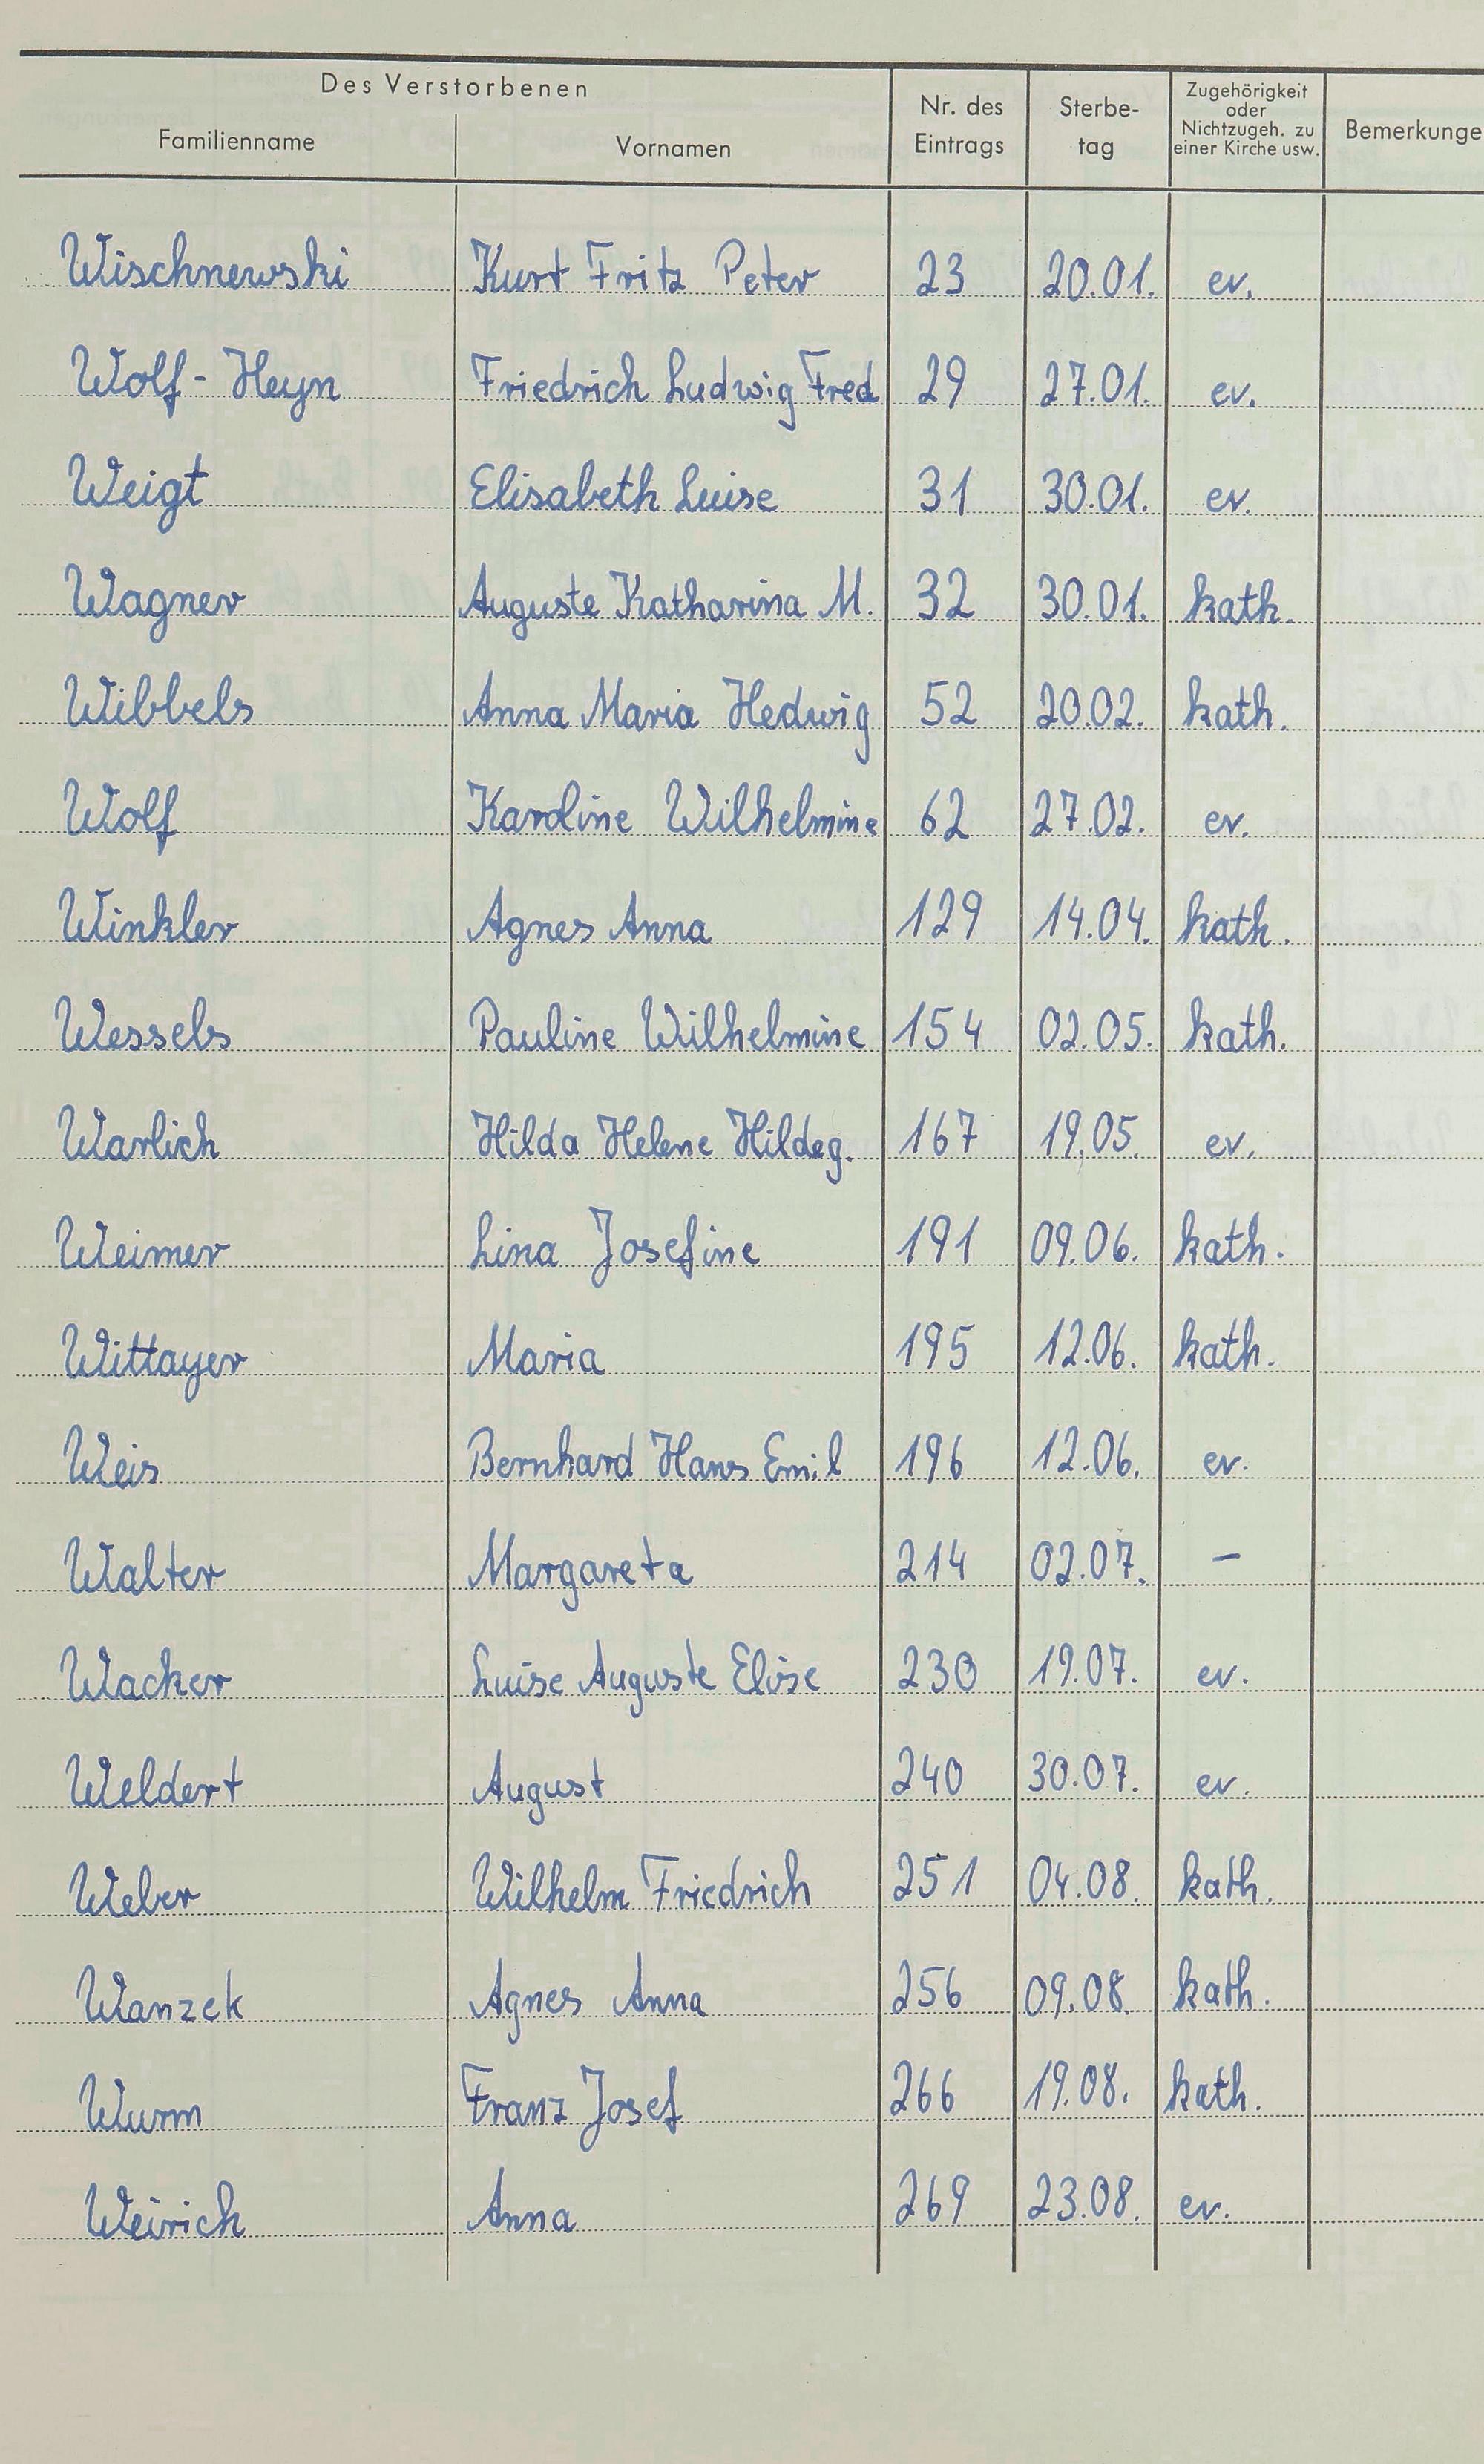 Des Verstorbenen
Familienname Vornamen Nr. des Eintrags Sterbe-tag Zugehörigkeit oder Nichtzugeh. zu einer Kirche usw. Bemerkunge
Wischnewski Kurt Fritz Peter 23 20.01. ev.
Wolf-Heyn Friedrich Ludwig Fred 29 27.01. ev.
Weigt Elisabeth Luise 31 30.01. ev.
Wagner Auguste Katharina M. 32 30.01. kath.
Wibbels Anna Maria Hedwig 52 20.02. kath.
Wolf Karoline Wilhelmine 62 27.02. ev.
Winkler Agnes Anna 129 14.04. kath.
Wessels Pauline Wilhelmine 154 02.05. kath.
Warlich Hilda Helene Hildeg. 167 19.05. ev.
Weimer Lina Josefine 191 09.06. kath.
Wittayer Maria 195 12.06. kath.
Weis Bernhard Hans Emil 196 12.06. ev.
Walter Margareta 214 02.07. –
Wacker Luise Auguste Elise 230 19.07. ev.
Weldert August 240 30.07. ev.
Weber Wilhelm Friedrich 251 04.08. kath.
Wanzek Agnes Anna 256 09.08. kath.
Wurm Franz Josef 266 19.08. kath.
Weirich Anna 269 23.08. ev.